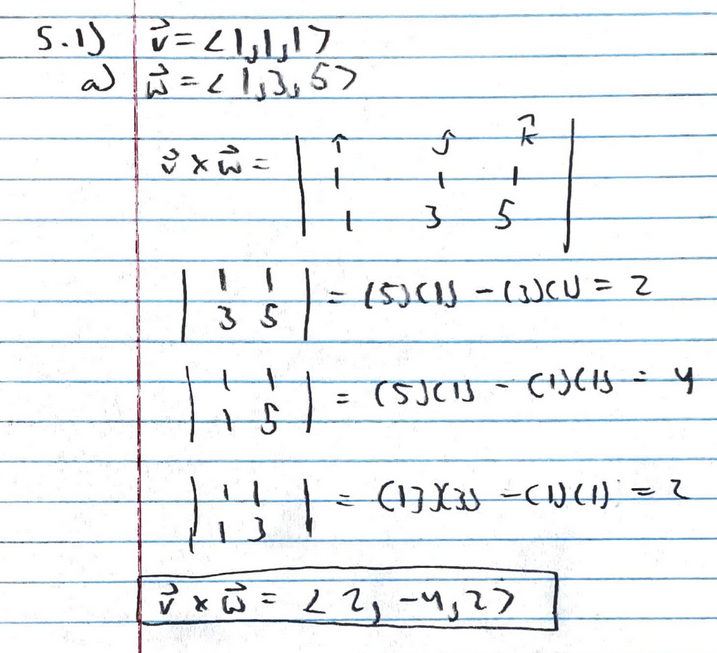 5.1) v⃗ = <1,1,1>
a) w⃗ = <1,3,5>
v⃗ × w⃗ = | î ĵ k̂ |
| 1 1 1 |
| 1 3 5 |
| 1 1 |
| 3 5 | = (5)(1) - (3)(1) = 2
| 1 1 |
| 1 5 | = (5)(1) - (1)(1) = 4
| 1 1 |
| 1 3 | = (1)(3) - (1)(1) = 2
v⃗ × w⃗ = <2, -4, 2>